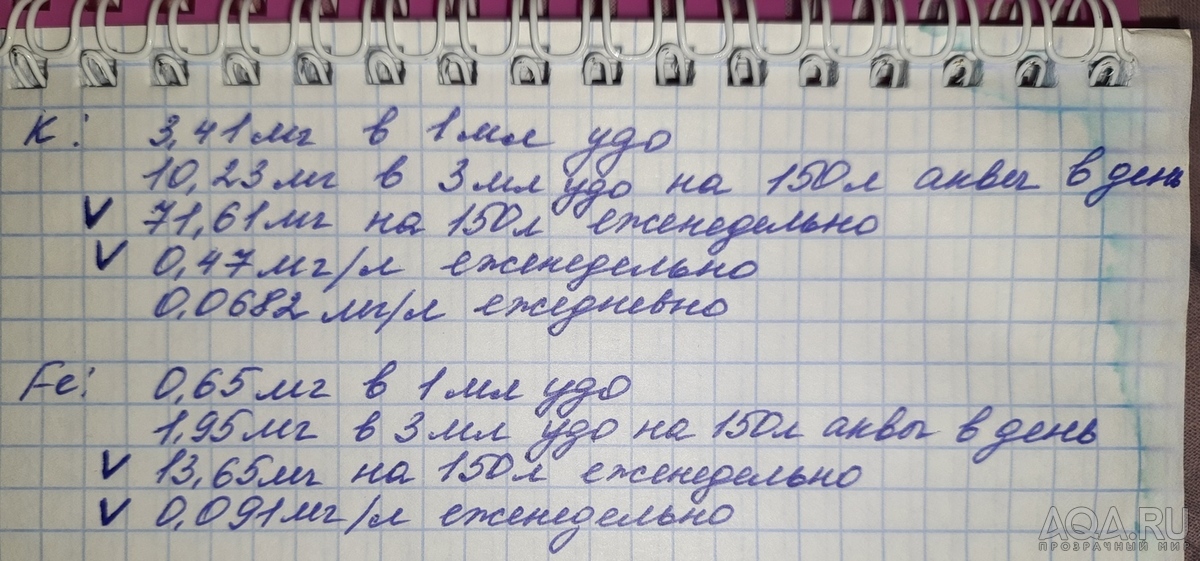 К: 3,41мг в 1мл удо
10,23мг в 3мл удо на 150л аквы в день
V 71,61мг на 150л еженедельно
V 0,47мг/л еженедельно
0,0682 мг/л ежедневно
Fe: 0,65мг в 1мл удо
1,95мг в 3мл удо на 150л аквы в день
V 13,65мг на 150л еженедельно
V 0,091мг/л еженедельно
AQA.RU
ПРОЗРАЧНЫЙ МИР